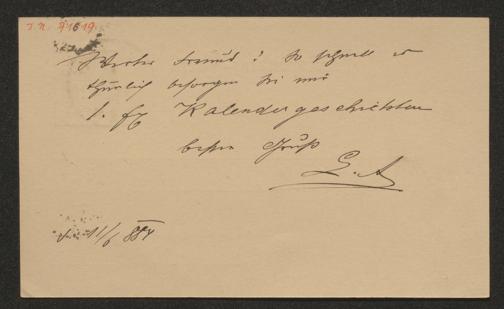 J.N. 71619
Werter Freund! So schnell es
thunlich besorgen Sie mir
1. Ex Kalendergeschichten
besten Gruß
L. A.
1/6 884